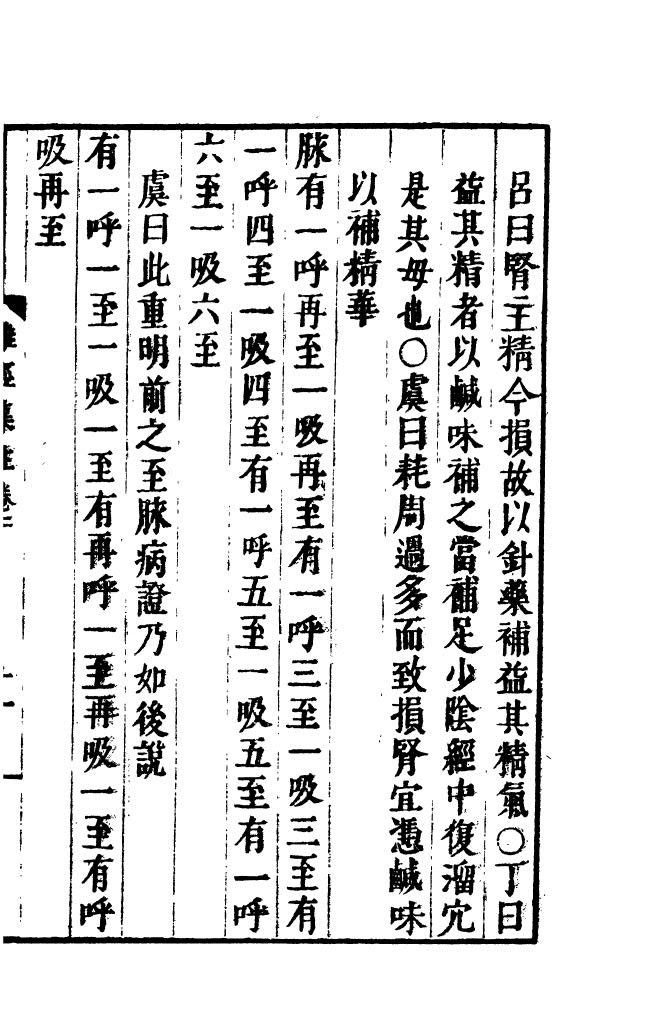 呂曰腎主精今損故以針藥補益其精氣〇丁曰
益其精者以鹹味補之當補足少陰經中復溜穴
是其母也〇虞曰耗周過多而致損腎宜憑鹹味
以補精華
脉有一呼再至一吸再至有一呼三至一吸三至有
一呼四至一吸四至有一呼五至一吸五至有一呼
六至一吸六至
虞曰此重明前之至脉病證乃如後說
有一呼一至一吸一至有再呼一至再吸一至有呼
吸再至
難經集註卷二
十一